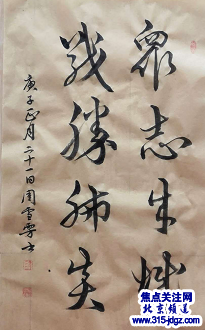 众志生城
战胜肺炎
庚子正月二十一日周雪雲书
焦点关注网
北京频道
www.315-jdgz.com